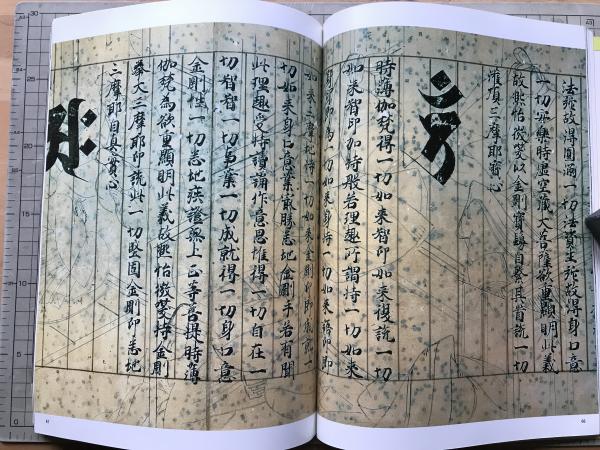 法施故得圓滿一切法資生施故得身口意
一切安樂時虛空藏大菩薩欲重顯明此義
故熙怡微笑以金剛寶鬘自繫其首說一切
灌頂三摩耶寶心
時薄伽梵得一切如來智印如來復說一切
如來智印加持般若理趣所謂持一切如來
身印即為一切如來身持一切如來語印即
如來三摩地持一切如來金剛印即成就一
切如來身口意業最勝悉地金剛手若有聞
此理趣受持讀誦作意思惟得一切自在一
切智智一切事業一切成就得一切身口意
金剛性一切悉地疾證無上正等菩提時薄
伽梵為欲重顯明此義故熙怡微笑持金剛
拳大三摩耶印說此一切堅固金剛印悉地
三摩耶自真實心